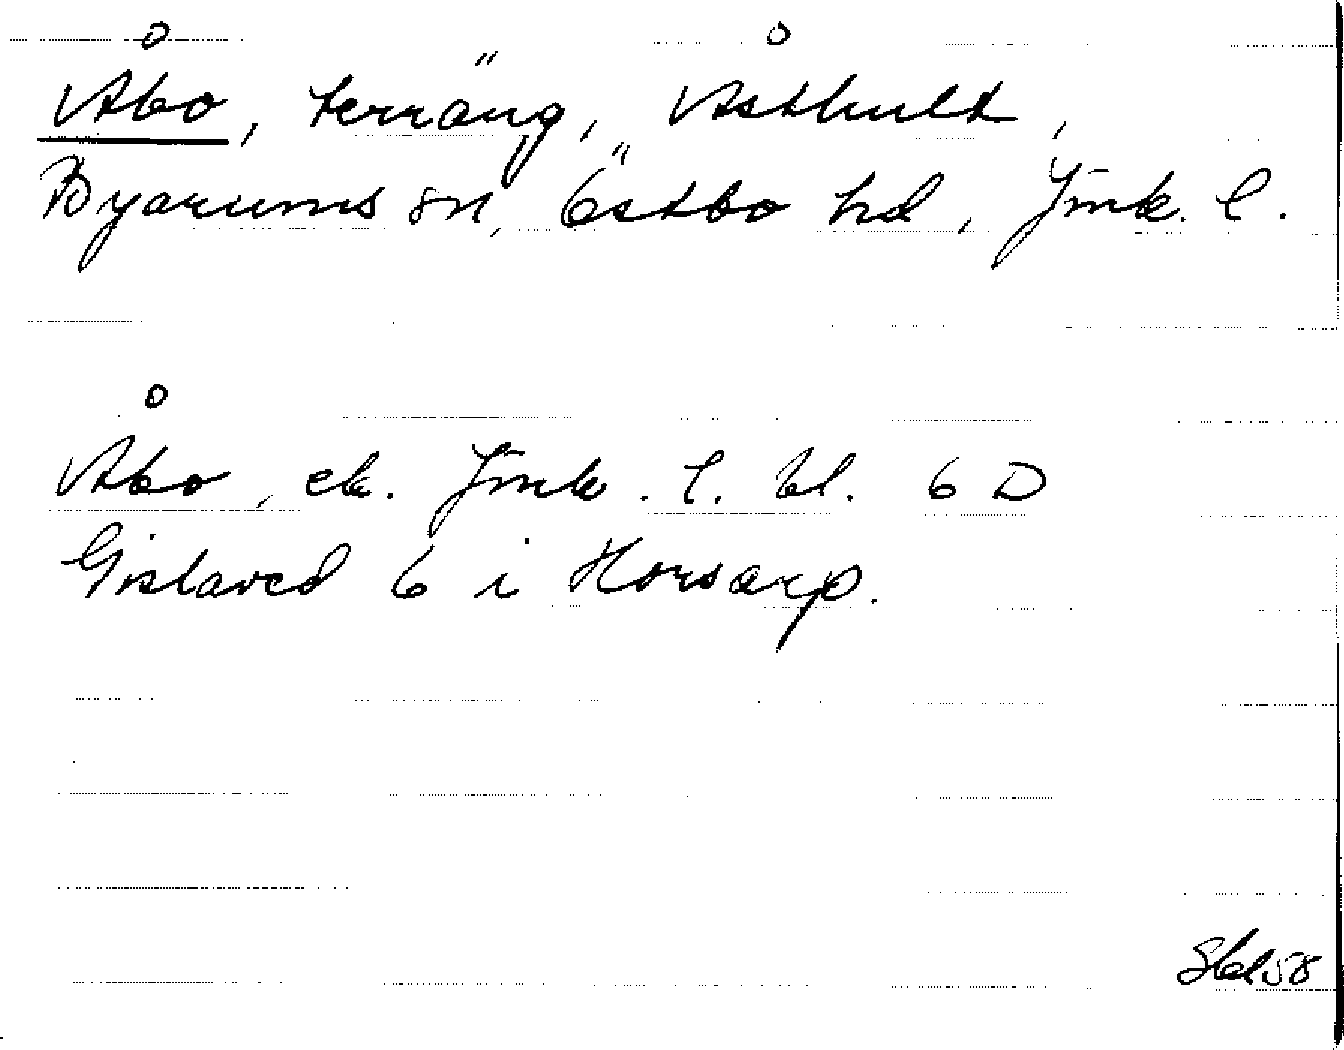 Åbo, terräng, Åsthult,
Byarums sn, Östbo hd, Jmk. l.
Åbo, ek. Jmk. l. bl. 6 D
Gislaved 6 i Horsarp.